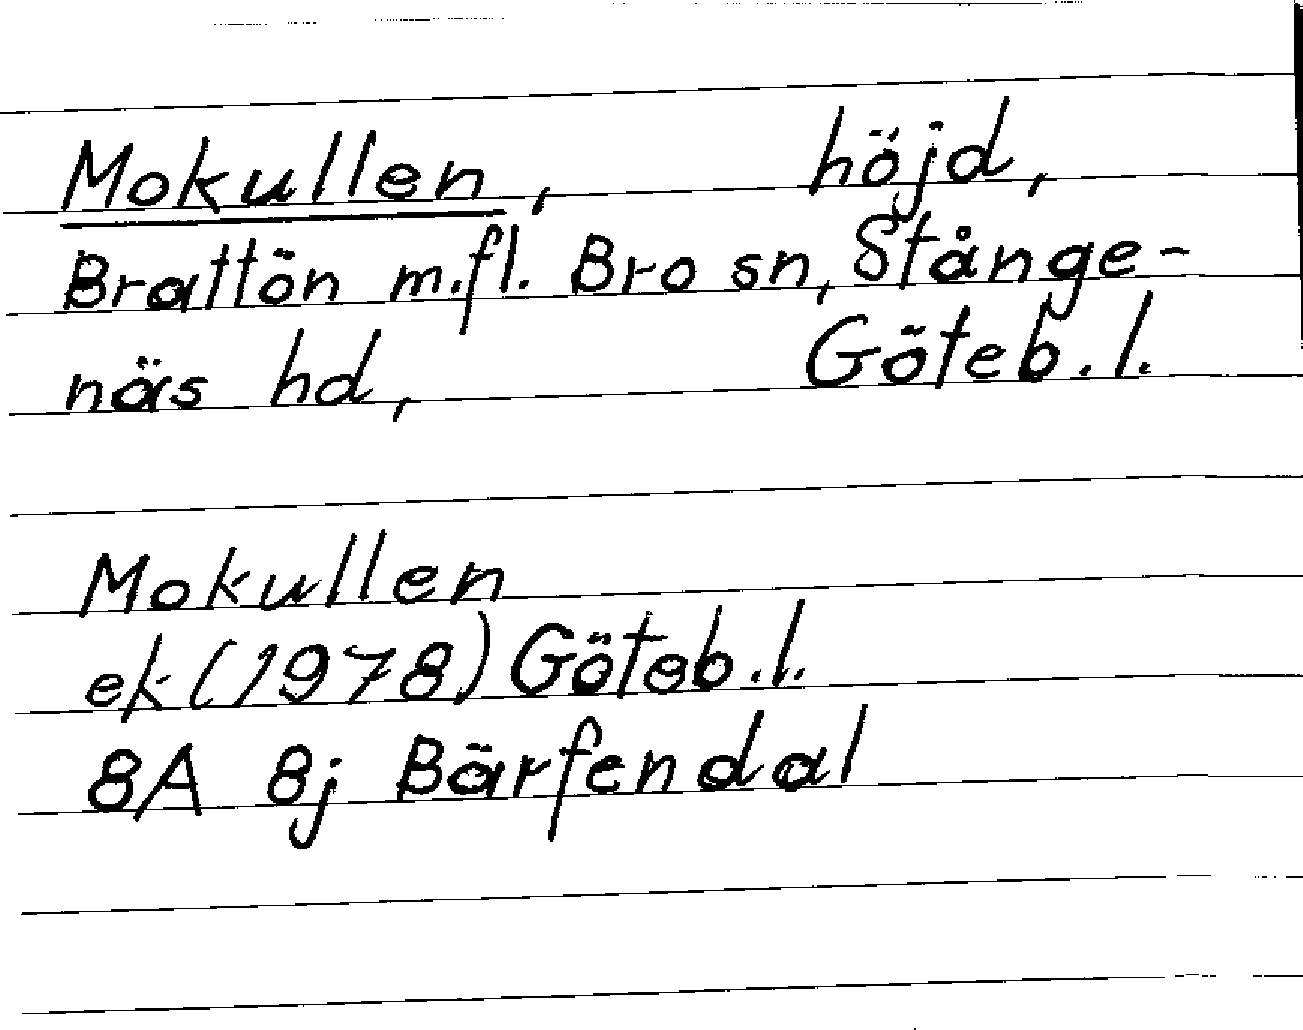 Mokullen, höjd,
Brattön m.fl. Bro sn, Stånge-
näs hd, Göteb.l.
Mokullen
ek (1978) Göteb.l.
8A 8j Bärfendal